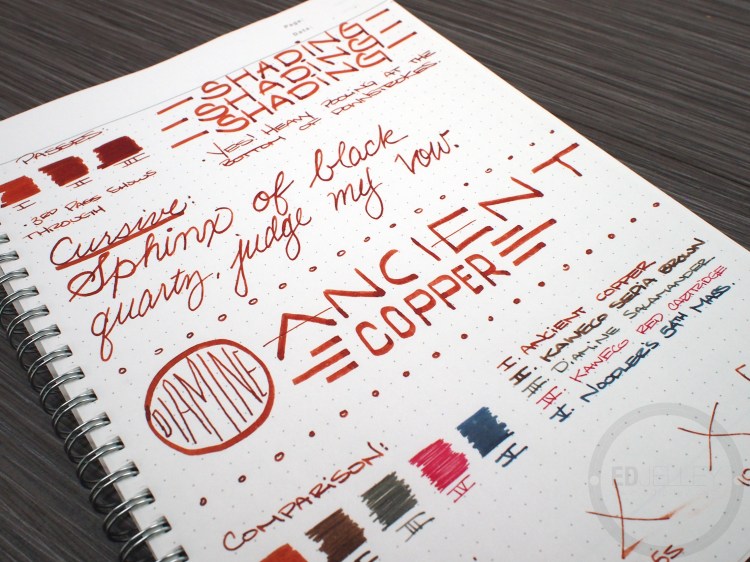 Page:
Date:
SHADING
SHADING
SHADING
· YES! HEAVY POOLING AT THE
BOTTOM OF DOWNSTROKES.
PASSES:
I
II
III
· 3RD PASS SHOWS
THROUGH
Cursive:
Sphinx of black
quartz, judge my vow.
DIAMINE
ANCIENT
COPPER
I. ANCIENT COPPER
II. KAWECO SEPIA BROWN
III DIAMINE SALAMANDER
IV KAWECO RED CARTRIDGE
V. NOODLER'S 54TH MASS.
COMPARISON:
II
III
IV
V
X
X